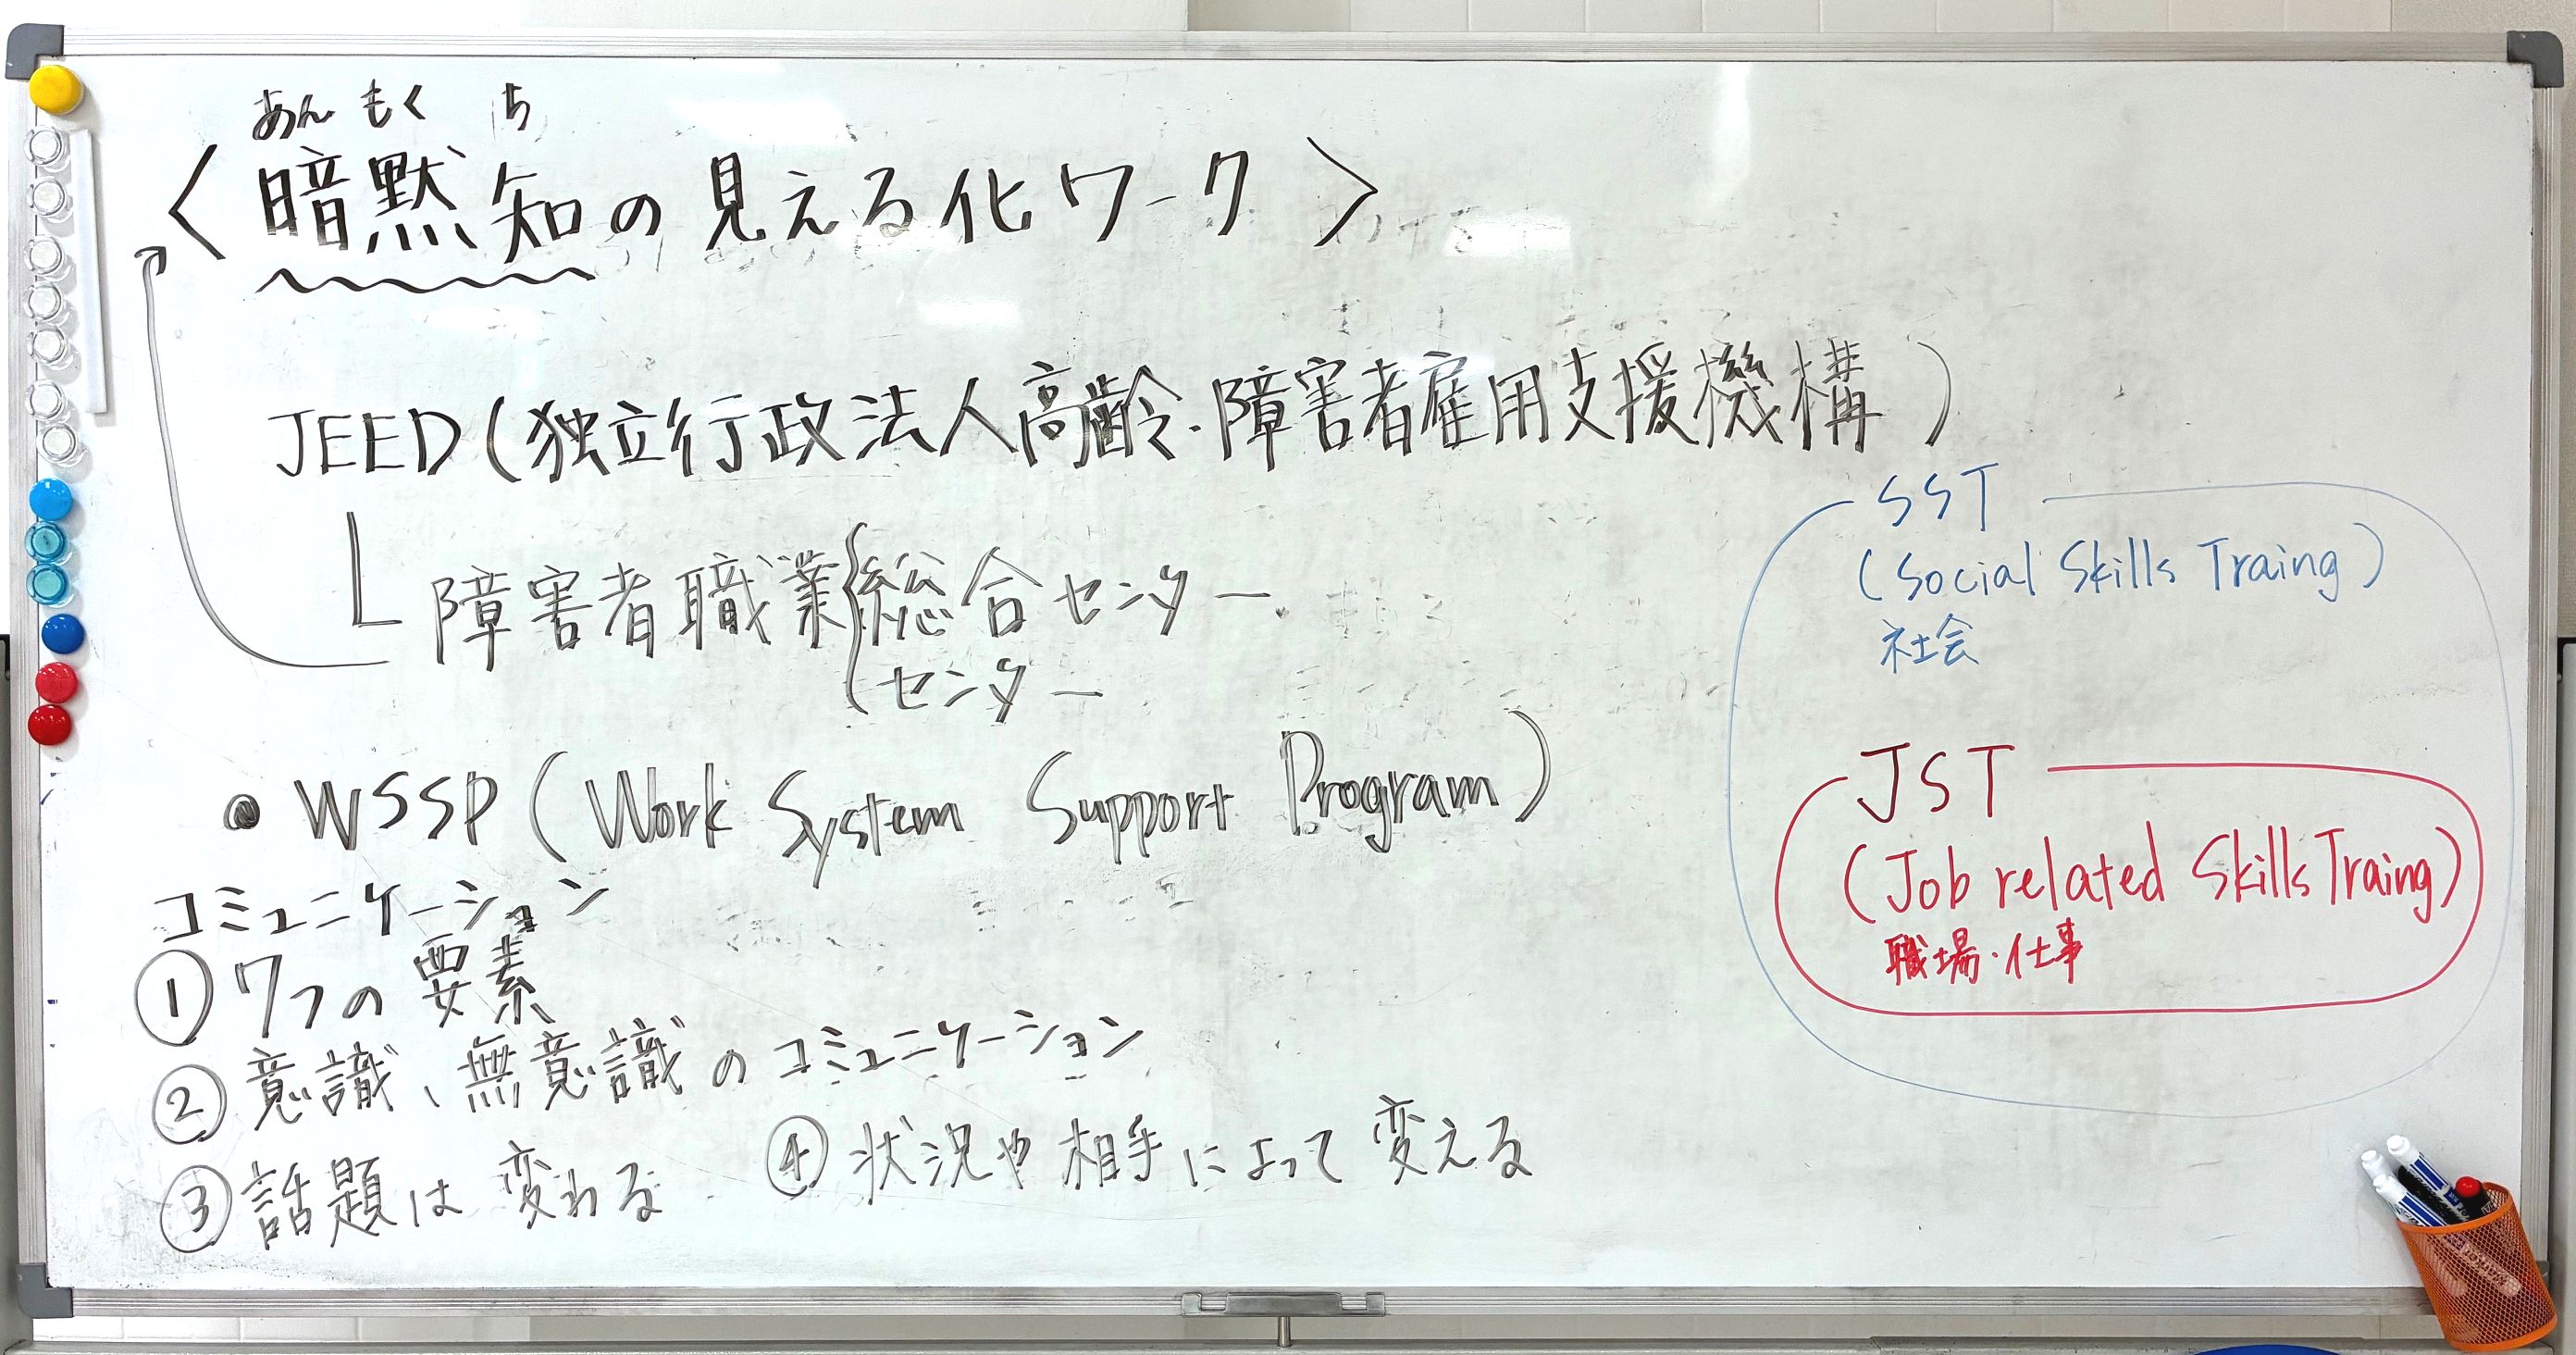 あん もく ち
〈 暗黙知の見える化ワーク 〉
JEED (独立行政法人高齢・障害者雇用支援機構)
障害者職業 総合センター
センター
● WSSP ( Work System Support Program )
コミュニケーション
① 7つの要素
② 意識、無意識のコミュニケーション
③ 話題は変わる
④ 状況や相手によって変える
SST
( Social Skills Traing )
社会
JST
( Job related Skills Traing )
職場・仕事